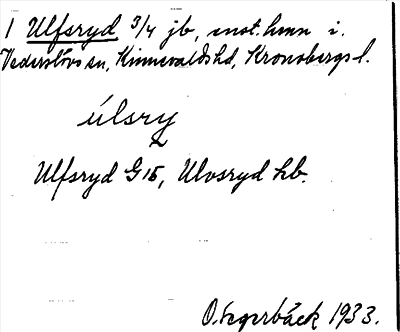 1 Ulfsryd 3/4 jb, mot. hmn i.
Vederslövs sn, Kinnevalds hd, Kronobergs l.
úlsry
Ulfsryd G 15, Ulvsryd hb.
O. Fagerbäck 1933.